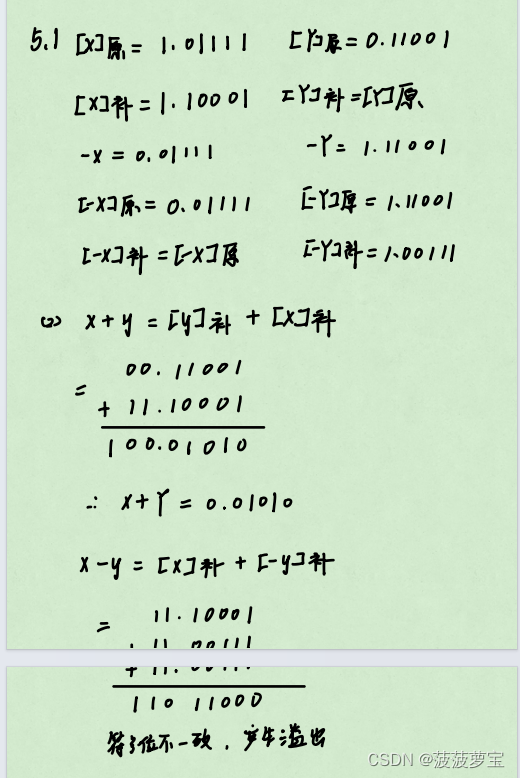 5.1 [X]原 = 1.01111 [Y]原 = 0.11001
[X]补 = 1.10001 [Y]补 = [Y]原
-x = 0.01111 -Y = 1.11001
[-X]原 = 0.01111 [-Y]原 = 1.11001
[-X]补 = [-X]原 [-Y]补 = 1.00111
x + y = [y]补 + [X]补
00.11001
=
+ 11.10001
100.01010
∴ x + Y = 0.01010
x - y = [x]补 + [-y]补
11.10001
=
+ 11.00111
110 11000
符号位不一致，产生溢出
CSDN @菠菠萝宝